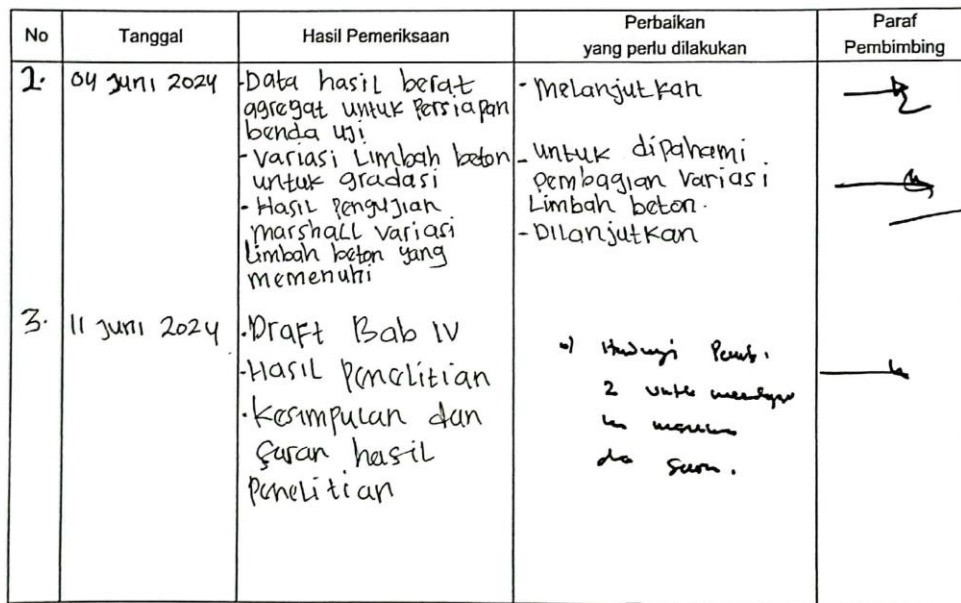 No
Tanggal
Hasil Pemeriksaan
Perbaikan
yang perlu dilakukan
Paraf
Pembimbing
2.
04 Juni 2024
- Data hasil berat
agregat untuk Persiapan
benda uji
- Variasi Limbah beton
untuk gradasi
- Hasil Pengujian
marshall variasi
Limbah beton yang
memenuhi
- Melanjutkan
- untuk dipahami
pembagian variasi
Limbah beton.
- Dilanjutkan
3.
11 Juni 2024
- Draft Bab IV
- Hasil Penelitian
- Kesimpulan dan
Saran hasil
Penelitian
Hubungi Pemb.
2 untuk
saran.